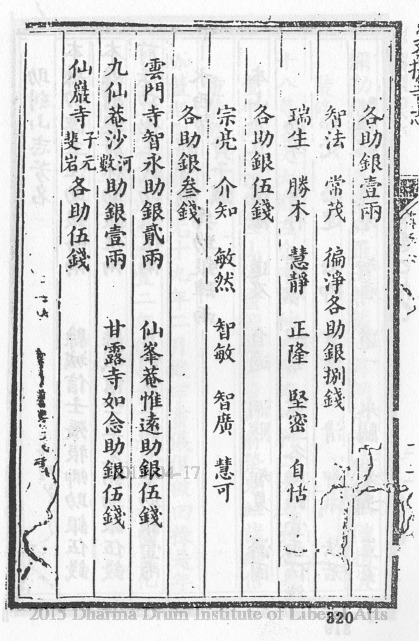 各助銀壹兩
智法 常茂 徧淨各助銀捌錢
瑞生 勝木 慧靜 正隆 堅密 自恬
各助銀伍錢
宗亮 介知 敏然 智敏 智廣 慧可
各助銀叁錢
雲門寺智永助銀貳兩 仙峯菴惟遠助銀伍錢
九仙菴沙河數助銀壹兩 甘露寺如念助銀伍錢
仙巖寺子元斐岩各助伍錢
2015 Dharma Drum Institute of Liberal Arts
320